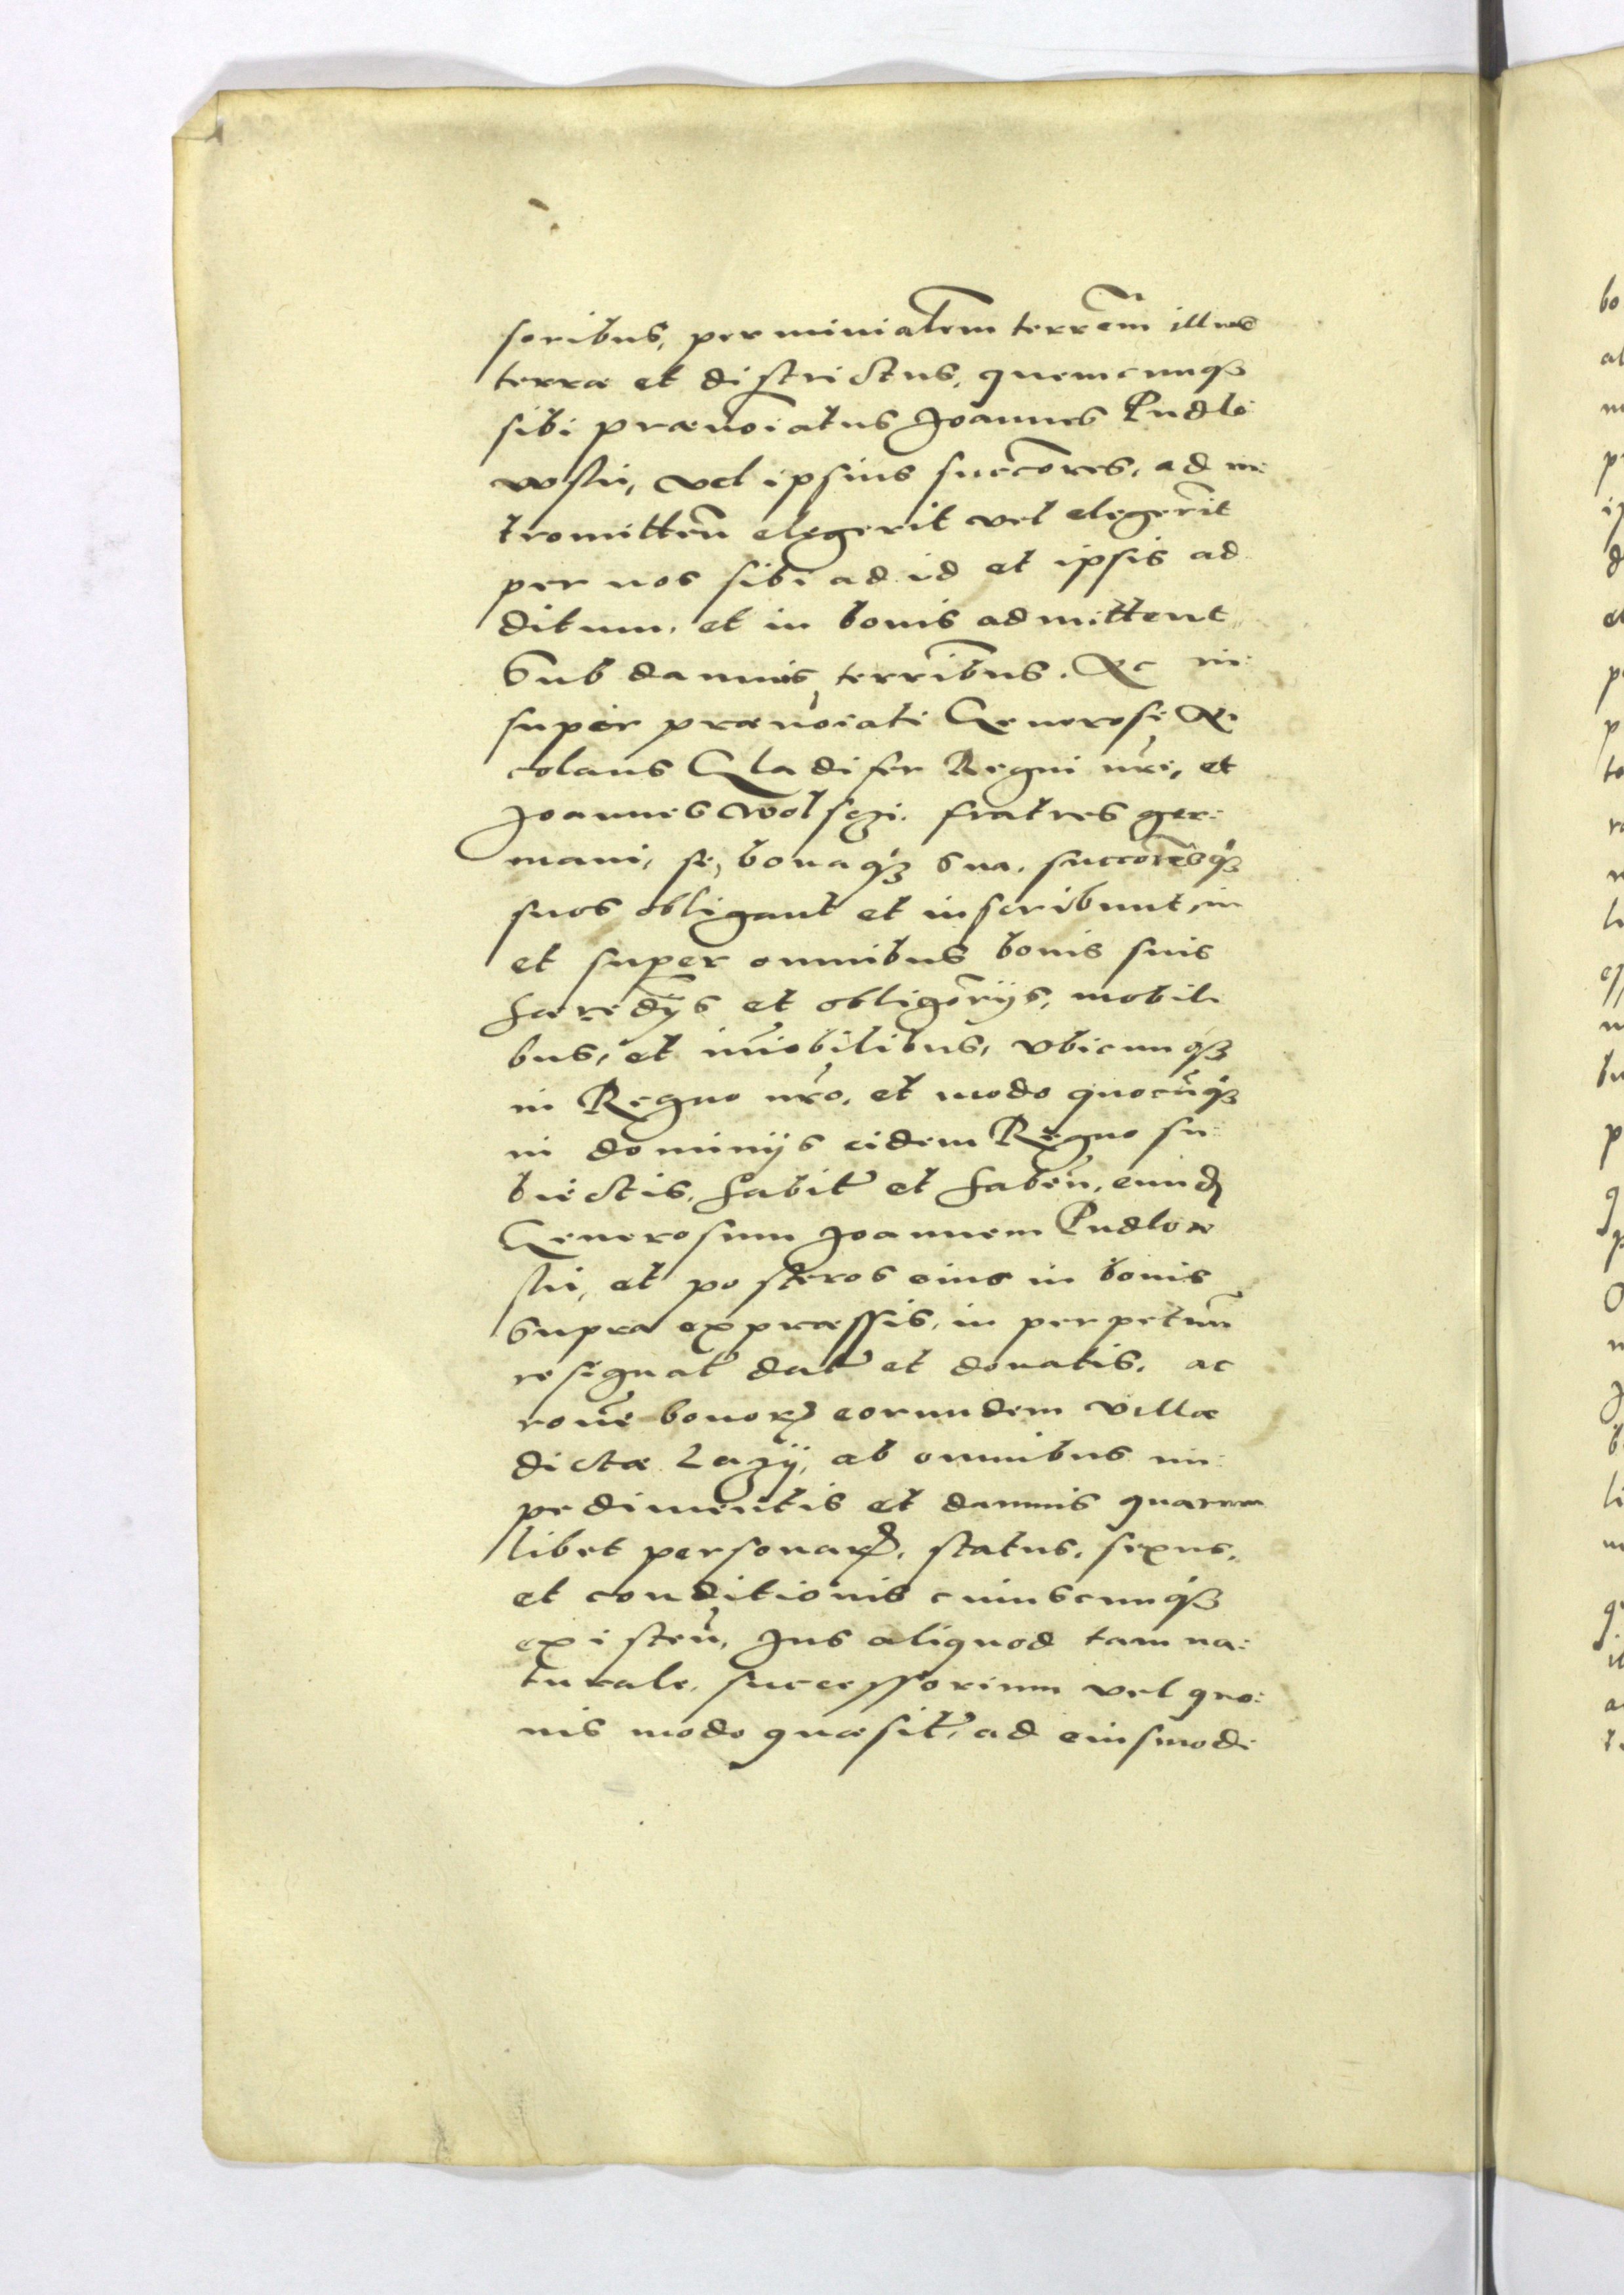 soribus, per minialem terrēm illius
terræ et districtus, quemcunqȝ
sibi prænoiatus Joannes Pudlo
wski, vel ipsius succores, ad in
tromitteñ elegerit vel elegerit
per nos sibi ad id et ipsis ad
ditum, et in bonis admittent
Sub damnis terribus. &c in:
super prænoiati Generosi Ni
colaus Gladifer Regni nri, et
Joannes Wolsczi. fratres ger:
mani, se, bonaqȝ sua, succoresqȝ
suos obligant et inscribunt, in
et super omnibus bonis suis
hæredijs et obligorijs, mobili
bus, et imobilibus, vbicunqȝ
in Regno nro, et modo quocūqȝ
in dominijs eidem Regno su:
biectis, habit et habeñ, eund
Generosum Joannem Pudlow
ski, et posteros eius in bonis
supra expræssis, in perpetuū
resignat dat et donatis, ac
rone bonorꝝ eorundem villæ
dictæ Lazy, ab omnibus im:
pedimentis et damnis quarum
libet personarꝝ, status, sexus,
et conditionis cuiuscunqȝ
existeñ, Jus aliquod tam na:
turale, successorium vel quo:
uis modo quæsit, ad eiusmodi